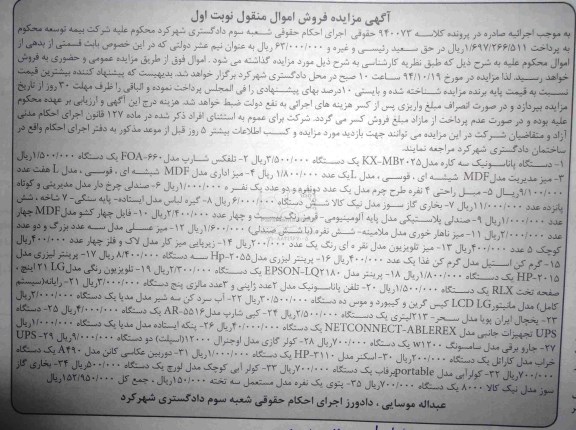 آگهی مزایده فروش اموال منقول نوبت اول
به موجب اجرائیه صادره در پرونده کلاسه ۹۴۰۰۷۳ حقوقی اجرای احکام حقوقی شعبه سوم دادگستری شهرکرد محکوم علیه شرکت بیمه توسعه محکوم
به پرداخت ۱/۶۹۷/۳۶۶/۵۱۱ ریال در حق سعید رئیسی و غیره و ۶۳/۰۰۰/۰۰۰ ریال به عنوان نیم عشر دولتی که در این خصوص بابت قسمتی از بدهی از
اموال محکوم علیه به شرح ذیل که طبق نظریه کارشناسی به شرح ذیل مورد مزایده گذاشته می شود . اموال فوق از طریق مزایده عمومی و حضوری به فروش
خواهد رسید. لذا مزایده در مورخ ۹۴/۱۰/۱۹ ساعت ۱۰ صبح در محل دادگستری شهرکرد برگزار خواهد شد. بدیهیست که پیشنهاد کننده بیشترین قیمت
نسبت به قیمت پایه برنده مزایده شناخته شده و بایستی ۱۰درصد بهای پیشنهادی را فی المجلس پرداخت نموده و الباقی را ظرف مهلت ۳۰ روز از تاریخ
مزایده بپردازد و در صورت انصراف مبلغ واریزی پس از کسر هزینه های اجرائی به نفع دولت ضبط خواهد شد. هزینه درج این آگهی و ارزیابی بر عهده محکوم
علیه بوده و در صورت عدم پرداخت از مازاد مبلغ فروش کسر می گردد. شرکت برای عموم به استثنای افراد ذکر شده در ماده ۱۲۷ قانون اجرای احکام مدنی
آزاد و متقاضیان شرکت در این مزایده می توانند جهت بازدید مورد مزایده و کسب اطلاعات بیشتر ۵ روز قبل از موعد مذکور به دفتر اجرای احکام واقع در
ساختمان دادگستری شهرکرد مراجعه نمایند.
۱- دستگاه پاناسونیک سه کاره مدل KX-MB۲۰۲۵ یک دستگاه ۳/۵۰۰/۰۰۰ریال ۲- تلفکس شارپ مدل FOA-۶۶۰ یک دستگاه ۱/۵۰۰/۰۰۰ریال
۳- میز مدیریت مدل MDF شیشه ای ، قوسی ، مدل L یک عدد ۱/۸۰۰/۰۰۰ ریال ۴- میز اداری مدل MDF شیشه ای ، قوسی ، مدل L هفت عدد
۹/۱۰۰/۰۰۰ریال ۵- مبل راحتی ۴ نفره طرح چرم مدل یک عدد دونفره و دو عدد یک نفره ۱/۰۰۰/۰۰۰ریال ۶- صندلی چرخ دار مدل مدیریتی و کوتاه
پانزده عدد ۱۱/۰۰۰/۰۰۰ریال ۷- بخاری گاز سوز مدل نیک کالا شش دستگاه ۶/۰۰۰/۰۰۰ ریال ۸- گیره لباس مدل ایستاده- پایه سنگی- ۷ شاخه ، شش
عدد ۱/۰۰۰/۰۰۰ریال ۹- صندلی پلاستیکی مدل پایه آلومینیومی- قرمز رنگ بیست و چهار عدد ۲/۴۰۰/۰۰۰ریال ۱۰- فایل چهار کشو مدل MDF چهار
عدد ۲/۰۰۰/۰۰۰ریال ۱۱- میز ناهار خوری مدل ملامینه- شش نفره (با شش صندلی) ۱/۶۰۰/۰۰۰ریال ۱۲- میز عسلی مدل سه عدد بزرگ و دو عدد
کوچک ۵ عدد ۴۰۰/۰۰۰ریال ۱۳- میز تلویزیون مدل نقره ای رنگ یک عدد ۲۰۰/۰۰۰ریال ۱۴- زیرپایی میز کار مدل لاک و فلز چهار عدد ۴۰۰/۰۰۰ریال
۱۵- گرم کن استیل مدل گرم کن غذا یک عدد ۴۰۰/۰۰۰ریال ۱۶- پرینتر لیزری مدل Hp-۲۰۵۵ سه دستگاه ۸/۴۰۰/۰۰۰ ریال ۱۷- پرینتر لیزری مدل
HP-۲۰۱۵ یک دستگاه ۱/۸۰۰/۰۰۰ریال ۱۸- پرینتر مدل EPSON-LQ۲۱۸۰ یک دستگاه ۲/۳۰۰/۰۰۰ریال ۱۹- تلویزیون رنگی مدل LG ۲۱ اینچ ،
صفحه تخت RLX یک دستگاه ۱/۵۰۰/۰۰۰ریال ۲۰- تلفن پاناسونیک مدل ۲عدد ژاپنی و ۳عدد مالزی پنج دستگاه ۳/۰۰۰/۰۰۰ریال ۲۱- رایانه(سیستم
کامل) مدل مانیتور LCD LG کیس گرین و کیبورد و موس ده دستگاه ۳۰/۵۰۰/۰۰۰ریال ۲۲- آب سرد کن سه شیر مدل مدیا یک دستگاه ۲/۰۰۰/۰۰۰ریال
۲۳- یخچال ایران پویا مدل سحر- ۲۱۳لیتری یک دستگاه ۲/۵۰۰/۰۰۰ریال ۲۴- کپی شارپ مدل AR-۵۵۱۶ یک دستگاه ۴/۰۰۰/۰۰۰ریال ۲۵- دستگاه
UPS تجهیزات جانبی مدل NETCONNECT-ABLEREX یک دستگاه ۴۰/۰۰۰/۰۰۰ریال ۲۶- پنکه ایستاده مدل مدیا یک دستگاه ۱/۰۰۰/۰۰۰ریال
۲۷- جارو برقی مدل سامسونگ w۱۲۰۰ یک دستگاه ۷۰۰/۰۰۰ریال ۲۸- کولر گازی مدل اوجنرال ۱۲۰۰۰(اسپلت) دو دستگاه ۹/۰۰۰/۰۰۰ریال ۲۹- UPS
خراب مدل کاراتل یک دستگاه ۲۰۰/۰۰۰ریال ۳۰- اسکنر مدل HP-۳۱۱۰ یک دستگاه ۱/۰۰۰/۰۰۰ریال ۳۱- دوربین عکاسی کانن مدل A۴۹۰ یک دستگاه
۷۰۰/۰۰۰ریال ۳۲- کولرآبی مدل portable برفاب یک دستگاه ۷۰۰/۰۰۰ریال ۳۳- کولر آبی کوچک مدل لورچ یک دستگاه ۵۰۰/۰۰۰ریال ۳۴- بخاری گاز
سوز مدل نیک کالا ۸۰۰۰ یک دستگاه ۷۰۰/۰۰۰ریال ۳۵- پتوی یک نفره مدل مستعمل سه تخته ۱۵۰/۰۰۰ریال ، جمع کل ۱۵۲/۹۵۰/۰۰۰ریال
عبداله موسایی ، دادورز اجرای احکام حقوقی شعبه سوم دادگستری شهرکرد